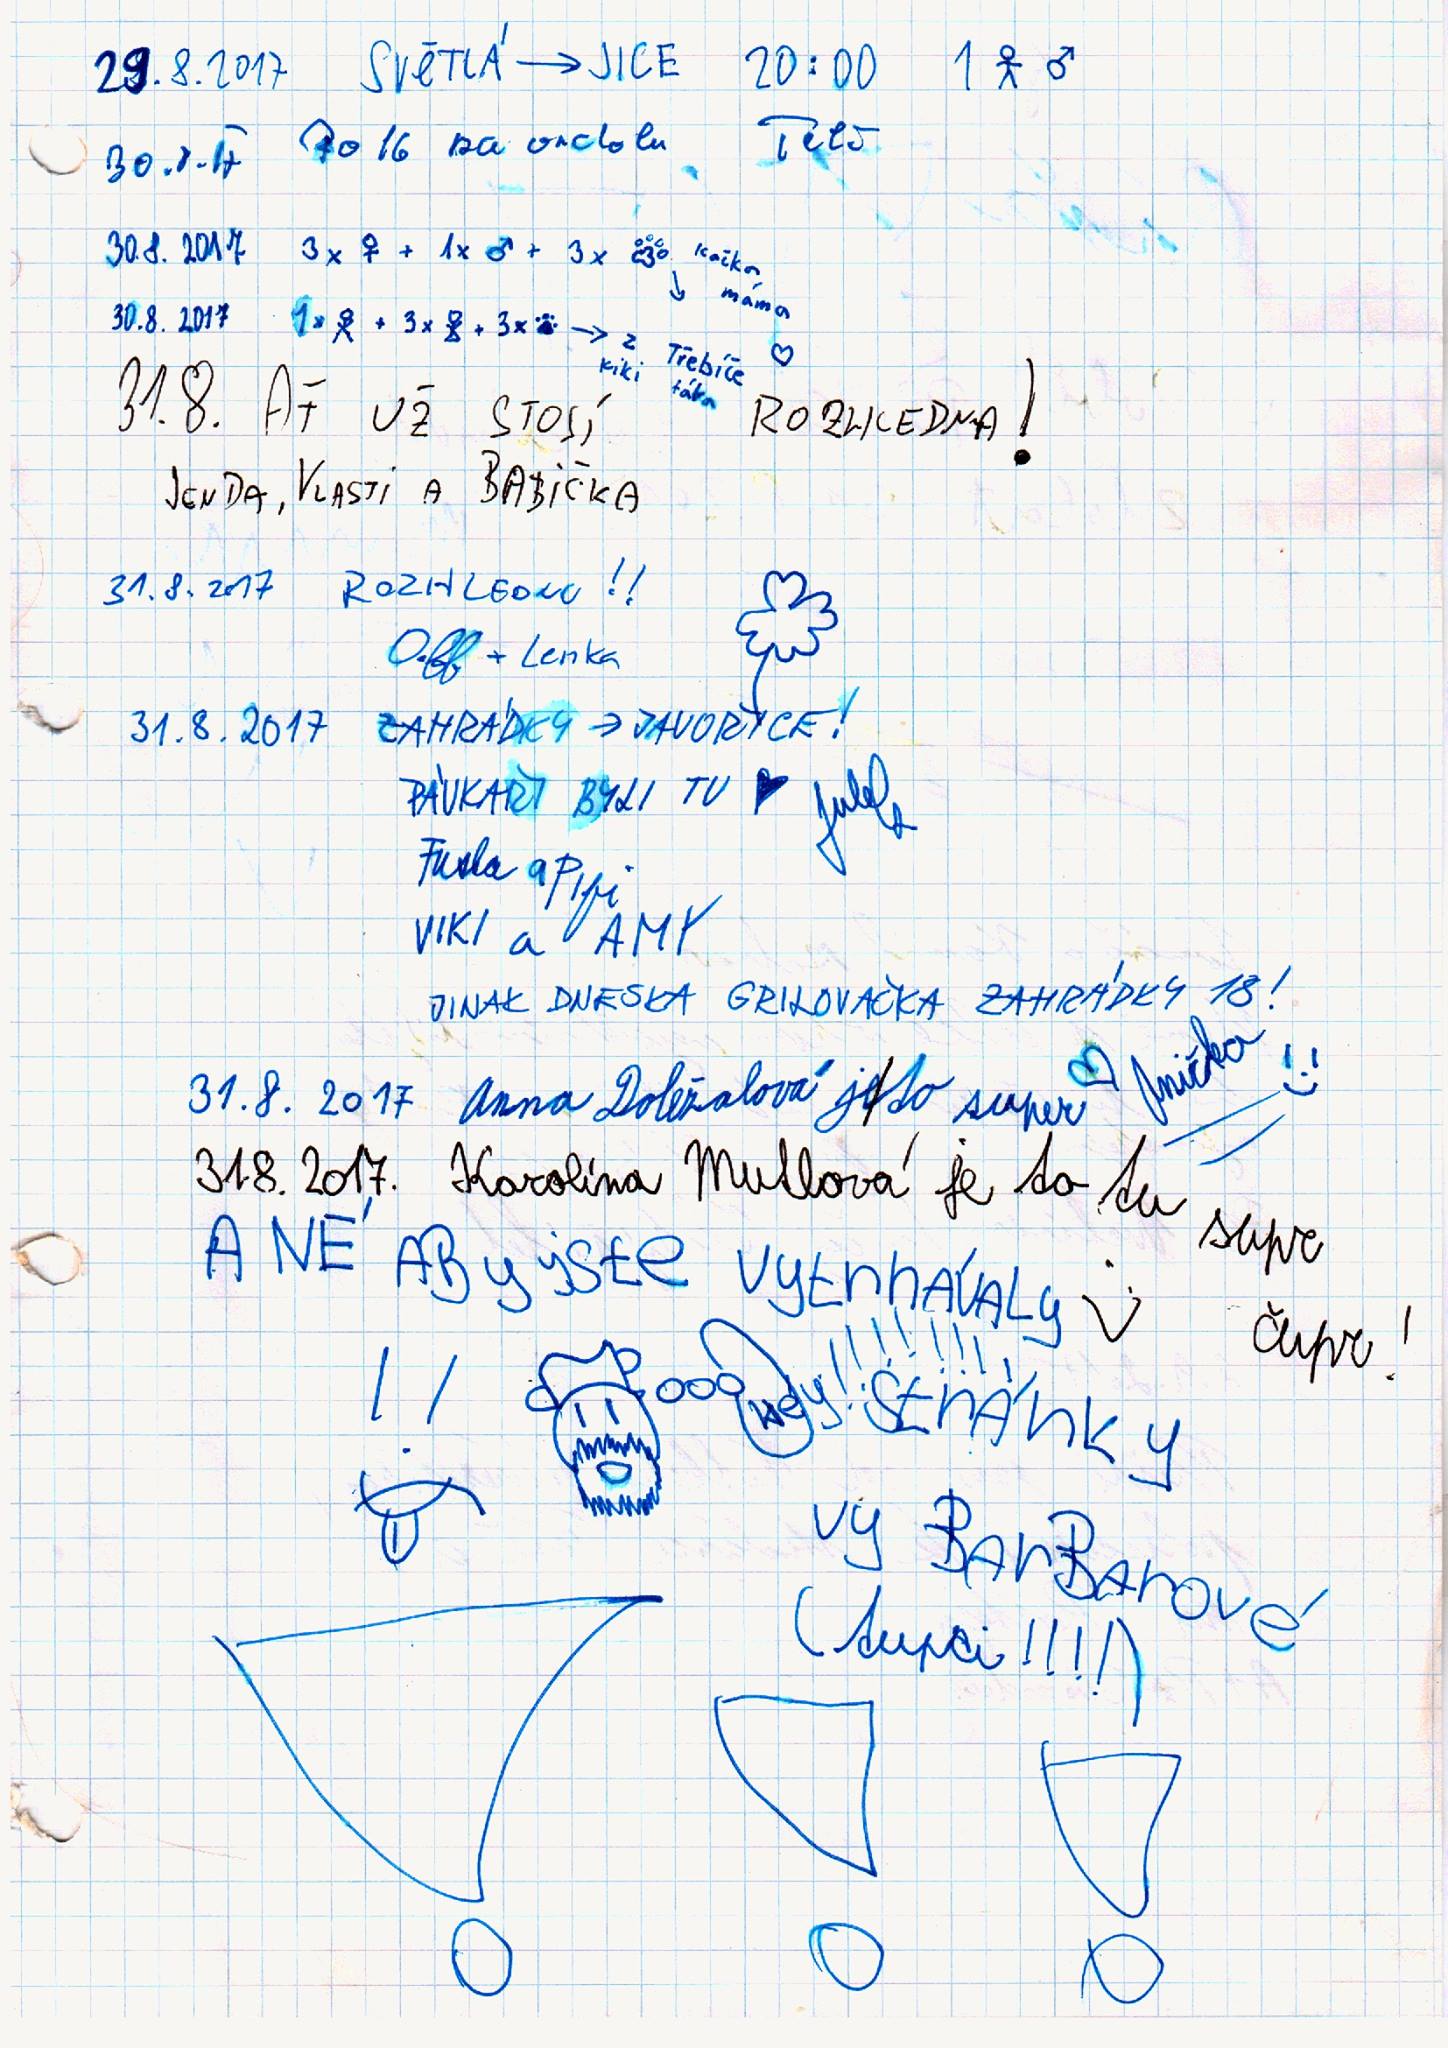 29.8.2017 SVĚTLÁ → JICE 20:00 1 ♂
30.8.17 Po 16 na vrcholu
30.8. 2017 3x ♀ + 1x ♂ + 3x kačka
máma
30.8. 2017 1x + 3x + 3x → z Třebíče ♡
kiki táta
31.8. AŤ UŽ STOJÍ ROZHLEDNA!
JENDA, VLASTI A BABIČKA
31.8.2017 ROZHLEDNU!!
+ Lenka
31.8.2017 ZAHRÁDKY → JAVOŘICE!
PÁVKAŘI BYLI TU ♥
a Pipi
VIKI a AMY
JINAK DNESKA GRILOVAČKA ZAHRÁDKY 18!
31.8. 2017 Anna Doležalová je to super ♡ Anička :)
31.8.2017. Karolína Mutlová je to tu supr
čupr!
A NÉ ABy jSte VytrhÁVALy
!! !!!!!!!
StrÁnky
Vy BArBArové
(tupci!!!!)